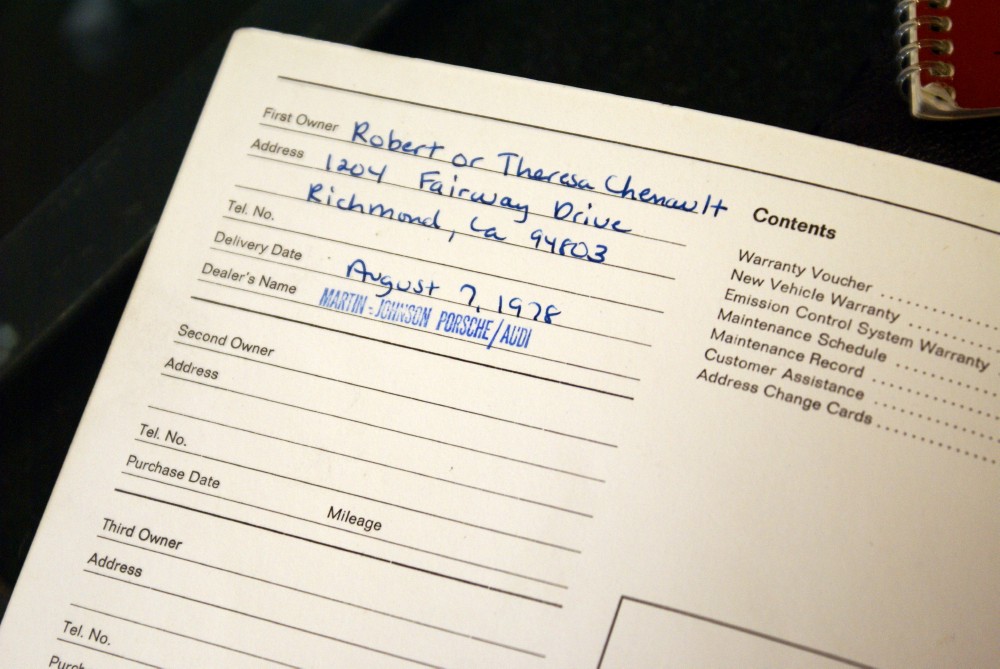 First Owner Robert or Theresa Chenault
Address 1204 Fairway Drive
Richmond, Ca 94803
Tel. No.
Delivery Date August 7, 1978
Dealer's Name MARTIN - JOHNSON PORSCHE/AUDI
Second Owner
Address
Tel. No.
Purchase Date
Mileage
Third Owner
Address
Tel. No.
Contents
Warranty Voucher
New Vehicle Warranty
Emission Control System Warranty
Maintenance Schedule
Maintenance Record
Customer Assistance
Address Change Cards